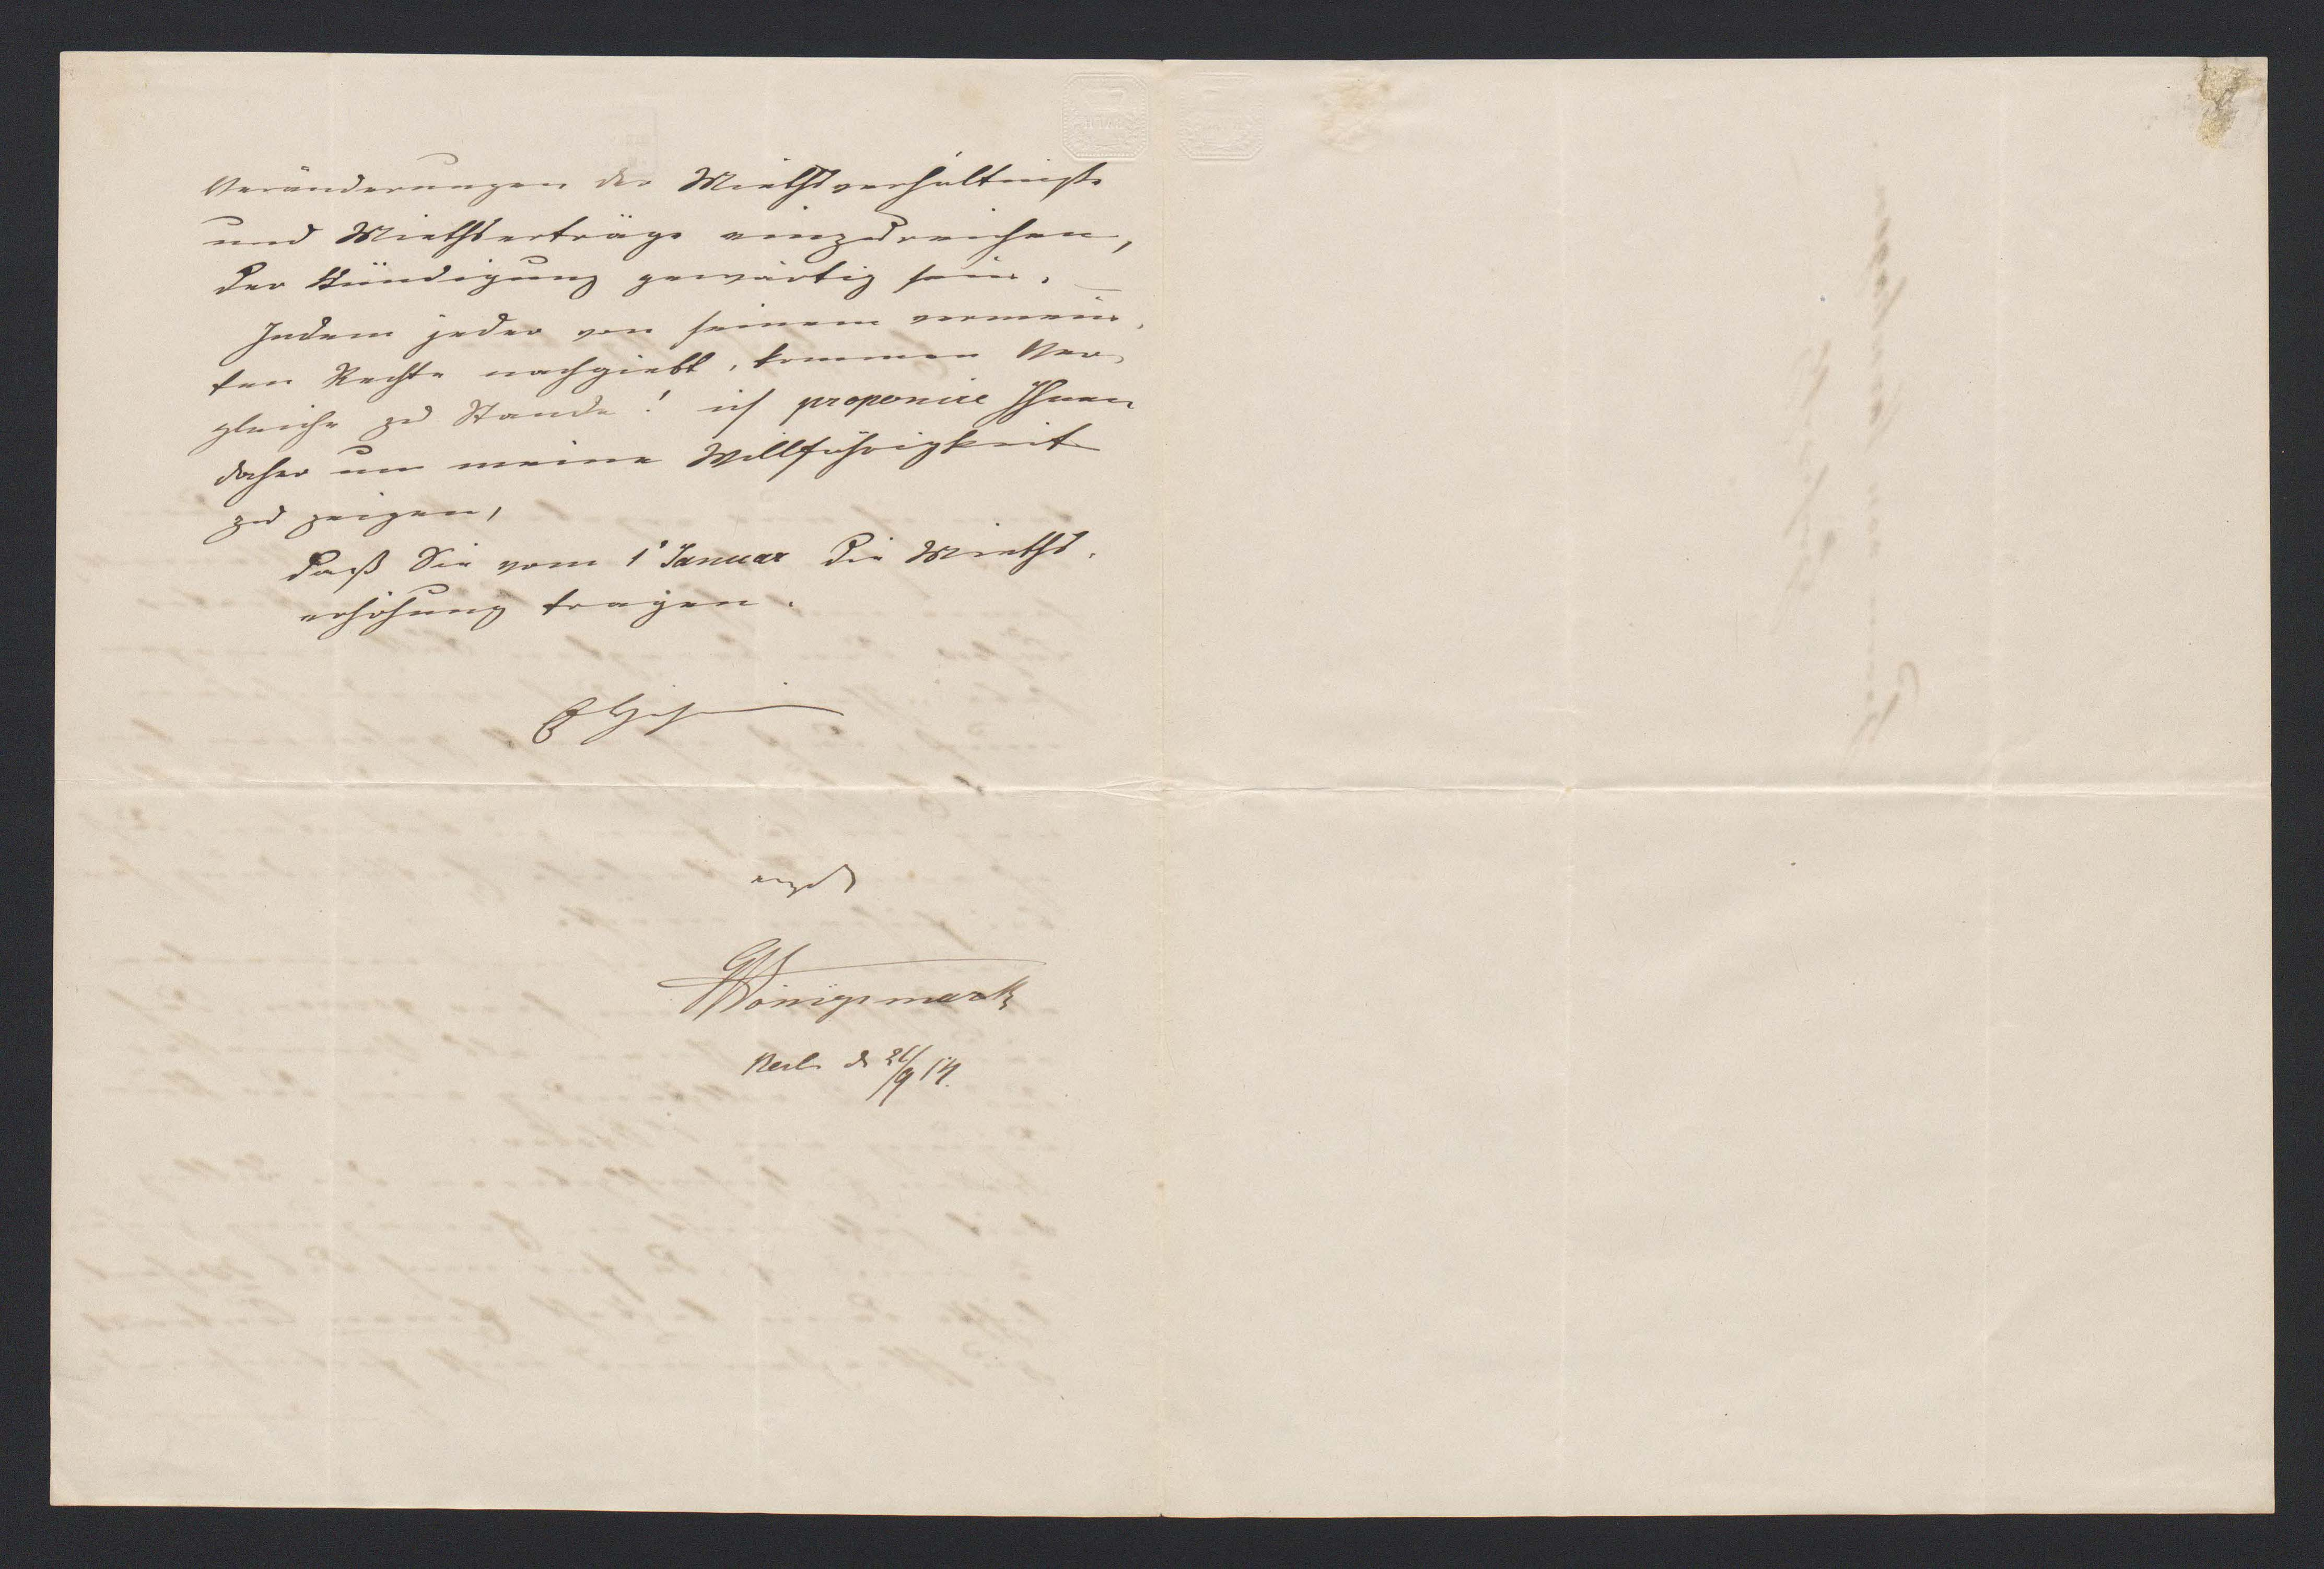 Veränderungen der Miethsverhältnisse
und Miethserträge einzureichen,
der Kündigung gewärtig sein.
Indem jeder von seinem vermein¬
ten Rechte nachgiebt, kommen Ver¬
gleiche zu Stande! ich proponire Ihnen
daher um meine Willfährigkeit
zu zeigen,
daß Sie vom 1' Januar die Mieths¬
erhöhung tragen.
Königsmark